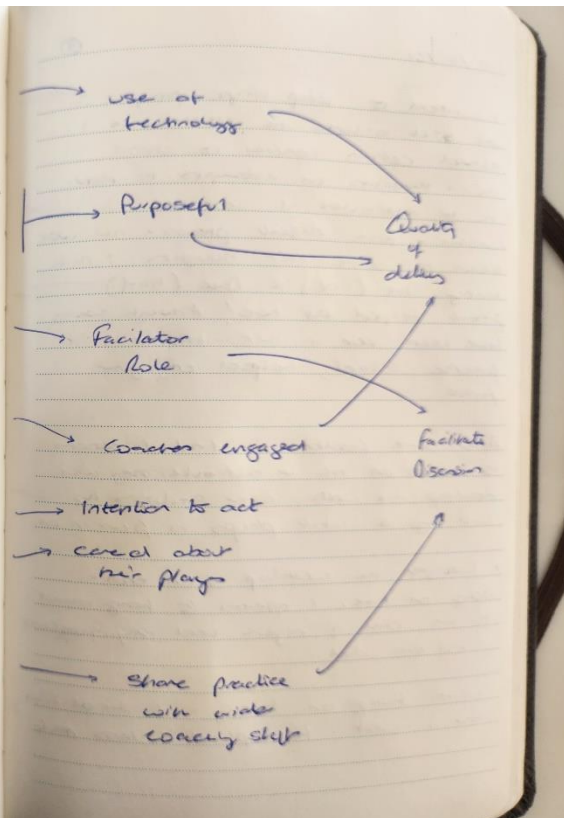 use of
technology
Purposeful
Quality
of
delivery
Facilitator
Role
Coaches engaged
Facilitate
Discussion
Intention to act
cared about
their players
Share practice
with wider
coaching staff